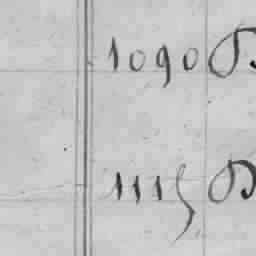 1090
1115